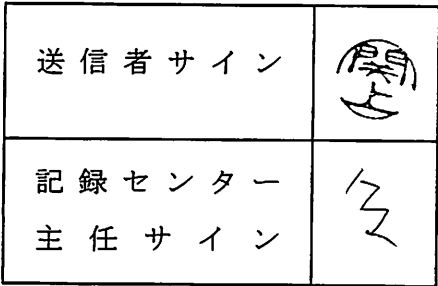 送信者サイン
関上
記録センター
主任サイン